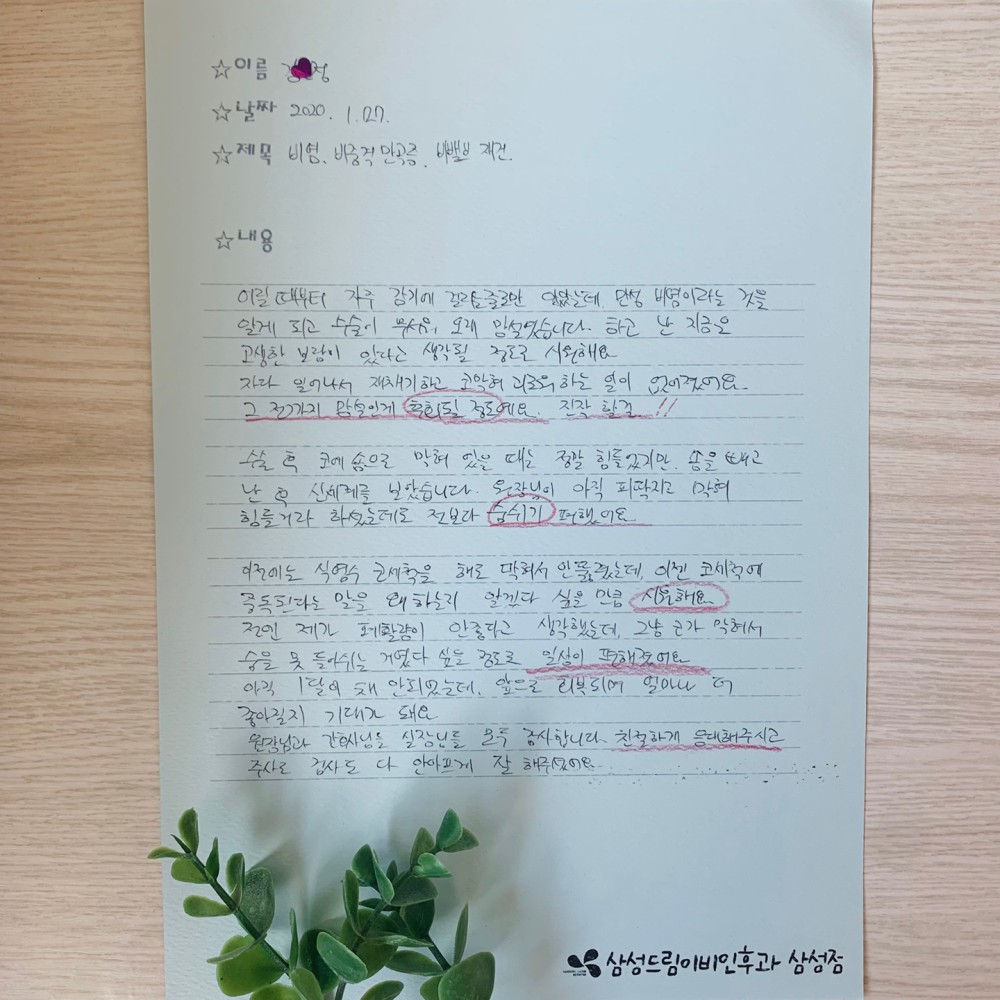 ☆이름 김 정
☆날짜 2020. 1. 27.
☆제목 비염, 비중격 만곡증, 비밸브 재건.
☆내용
어릴 때부터 자주 감기에 걸리는줄로만 알았는데 만성 비염이라는 것을
알게 되고 수술이 무서워, 오래 망설였습니다. 하고 난 지금은
고생한 보람이 있다고 생각될 정도로 시원해요
자다 일어나서 재채기하고 코막혀 괴로워 하는 일이 없어졌어요
그 전까지 참은게 후회될 정도예요. 진작 할걸!!
수술 후 코에 솜으로 막혀 있을 때는 정말 힘들었지만, 솜을 빼고
난 후 신세계를 보았습니다. 원장님이 아직 피딱지로 막혀
힘들거라 하셨는데도 전보다 숨쉬기 편했어요
이전에는 식염수 코세척을 해도 막혀서 안뚫렸는데, 이젠 코세척에
중독된다는 말을 왜 하는지 알겠다 싶을 만큼 시원해요
전엔 제가 폐활량이 안좋다고 생각했는데, 그냥 코가 막혀서
숨을 못 들이쉬는 거였다 싶을 정도로 일상이 편해졌어요
아직 1달이 채 안되었는데, 앞으로 회복되며 얼마나 더
좋아질지 기대가 돼요
원장님과 간호사님들 실장님들 모두 감사합니다. 친절하게 응대해주시고
주사도 검사도 다 안아프게 잘 해주셨어요
삼성드림이비인후과 삼성점